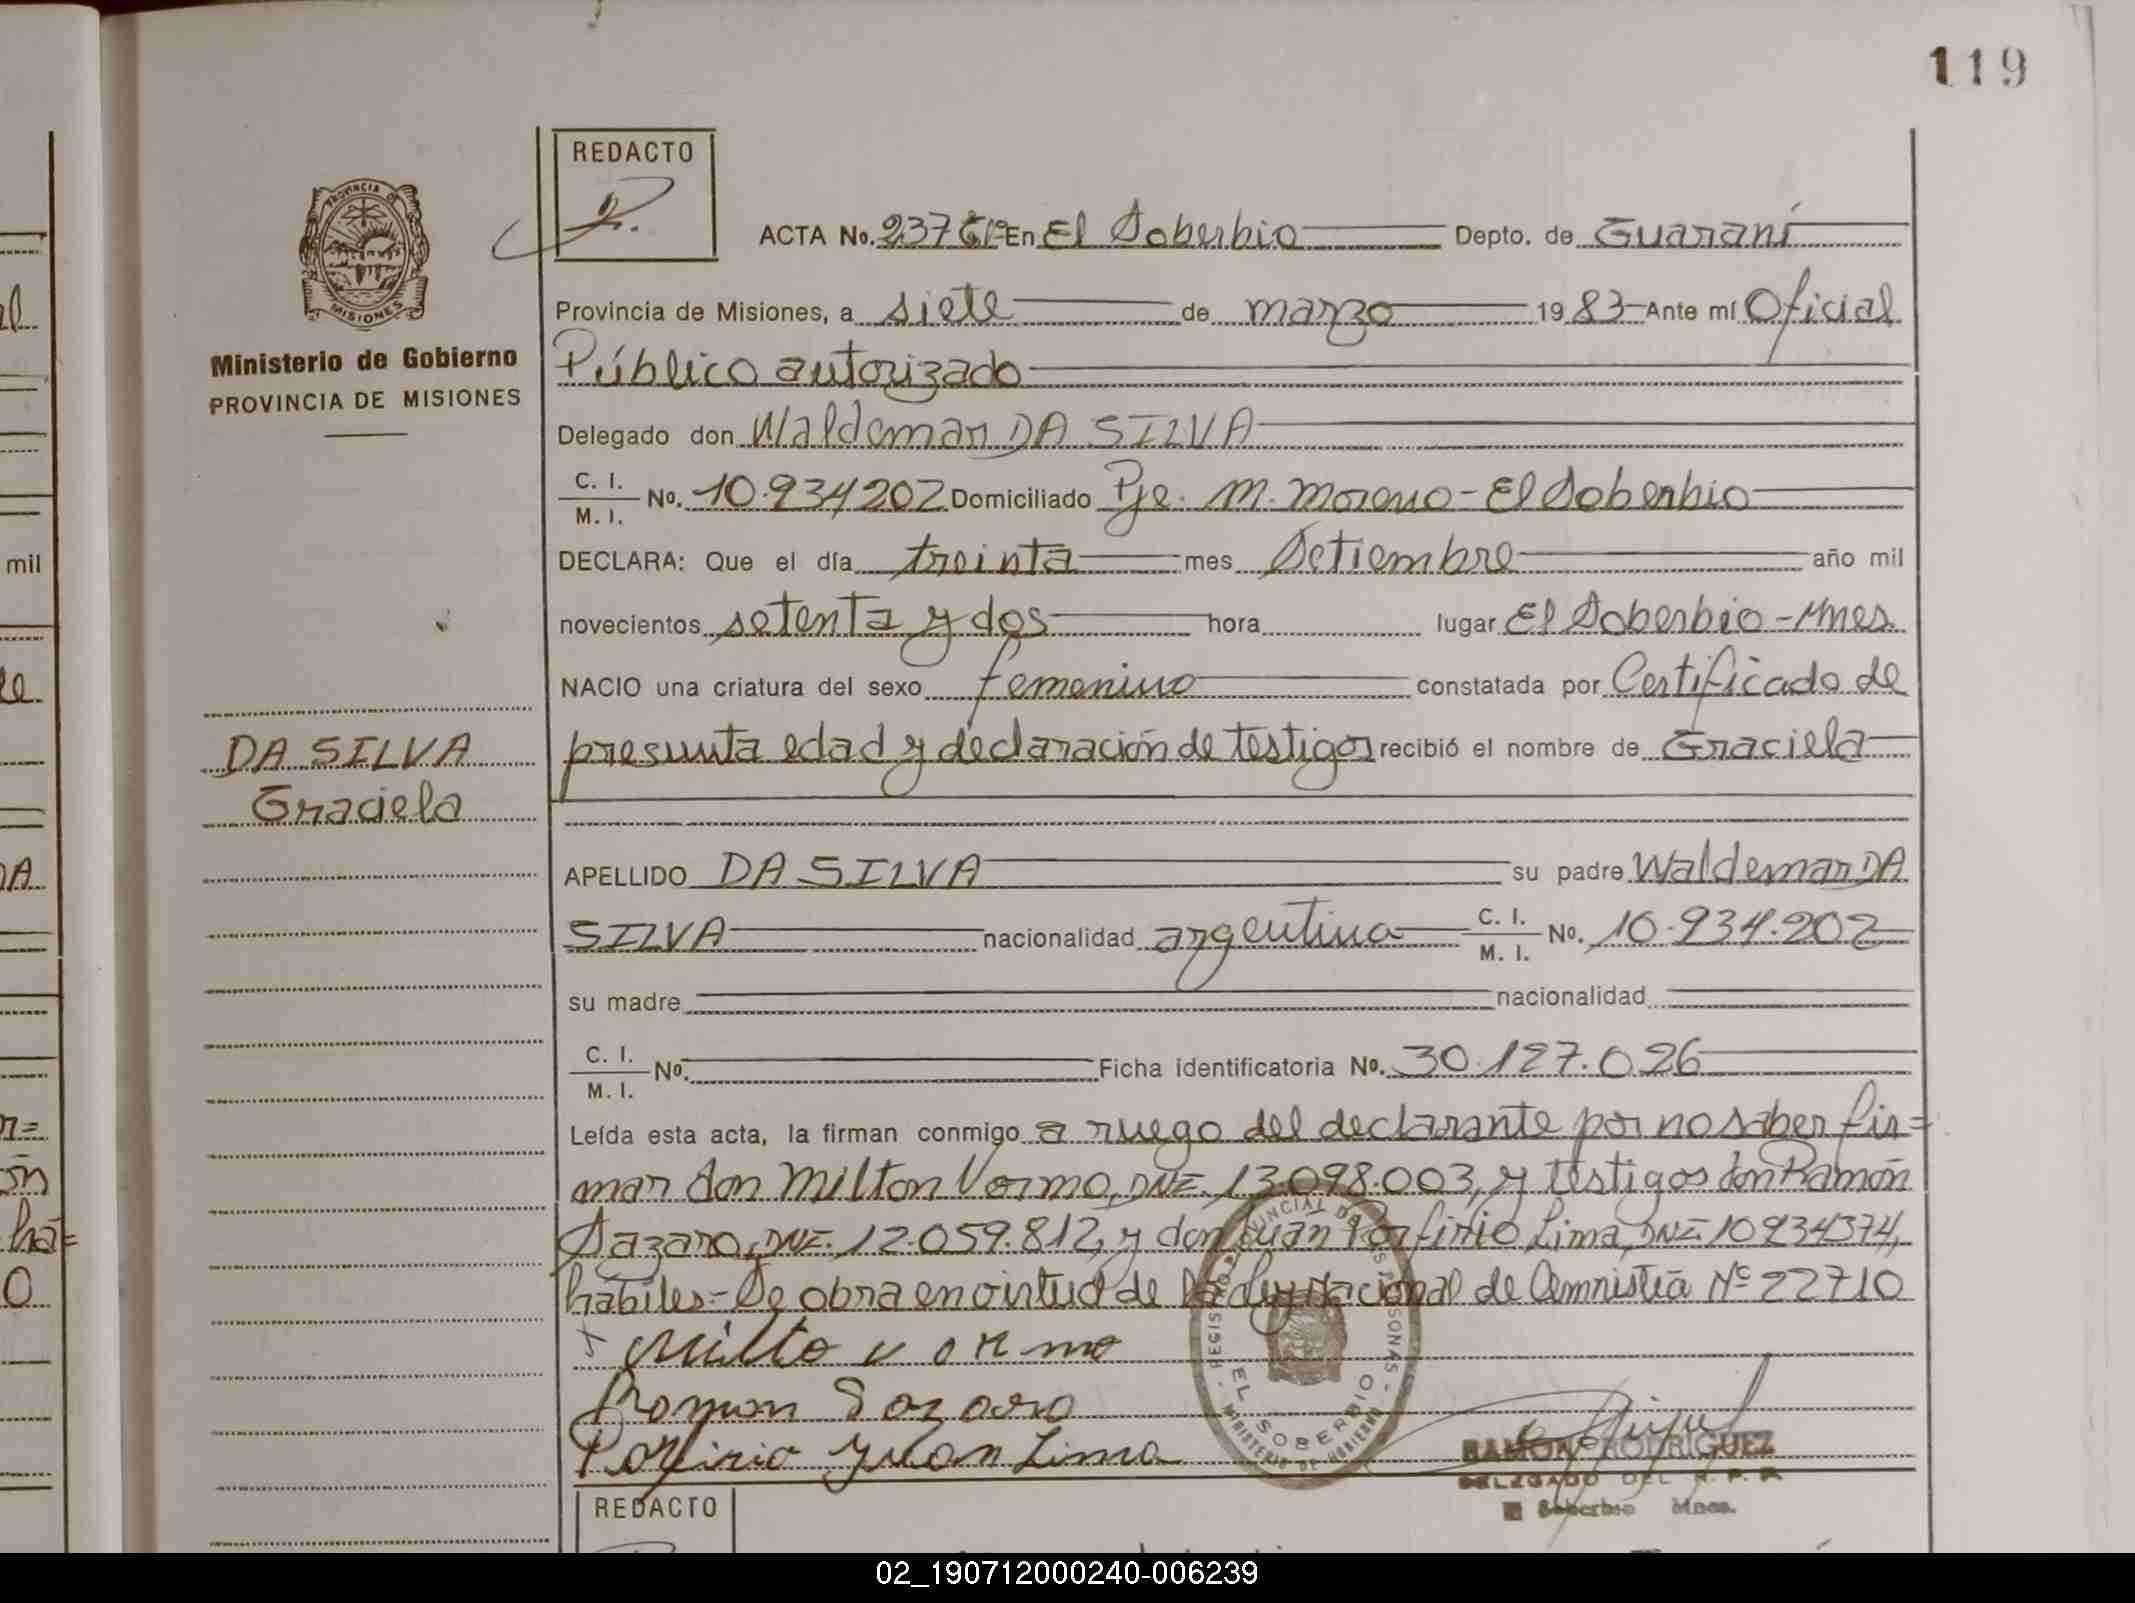 119
REDACTO
ACTA No. 237 En El Soberbio Depto. de Guaraní
Provincia de Misiones, a siete de marzo 1983 Ante mí Oficial
Público autorizado
Delegado don Waldemar DA SILVA
C. I.
M. I. No. 10.934202 Domiciliado Pje. M. Moreno - El Soberbio
DECLARA: Que el día treinta mes Setiembre año mil
novecientos setenta y dos hora lugar El Soberbio - Mnes.
NACIO una criatura del sexo femenino constatada por Certificado de
presunta edad y declaración de testigos recibió el nombre de Graciela
APELLIDO DA SILVA su padre Waldemar DA
SILVA nacionalidad argentina C. I.
M. I. No. 10.934.202
su madre nacionalidad
C. I.
M. I. No. Ficha identificatoria No. 30.127.026
Leída esta acta, la firman conmigo a ruego del declarante por no saber fir=
mar don Milton Vormo, DNI. 13.098.003, y testigos don Ramón
Sazaro, DNI. 12.059.812, y don Juan Porfirio Lima, DNI. 10934374,
habiles.- Se obra en virtud de la Ley Nacional de Amnistia Nº 22710
Milto vormo
Ramon Sozaro
Porfirio Juan Lima
REGISTRO PROVINCIAL DE LAS PERSONAS
EL SOBERBIO
MINISTERIO DE GOBIERNO
RAMON RODRIGUEZ
DELEGADO DEL R. P. P.
El Soberbio Mnes.
REDACTO
PROVINCIA DE
MISIONES
Ministerio de Gobierno
PROVINCIA DE MISIONES
DA SILVA
Graciela
mil
02_190712000240-006239